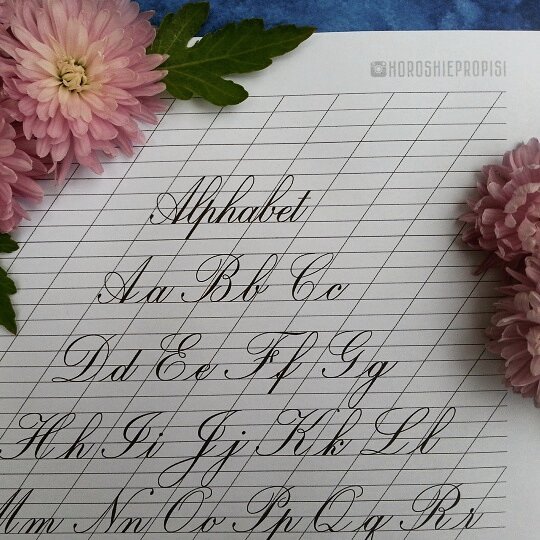 HOROSHIEPROPISI
Alphabet
Aa Bb Cc
Dd Ee Ff Gg
Hh Ii Jj Kk Ll
Mm Nn Oo Pp Qq Rr